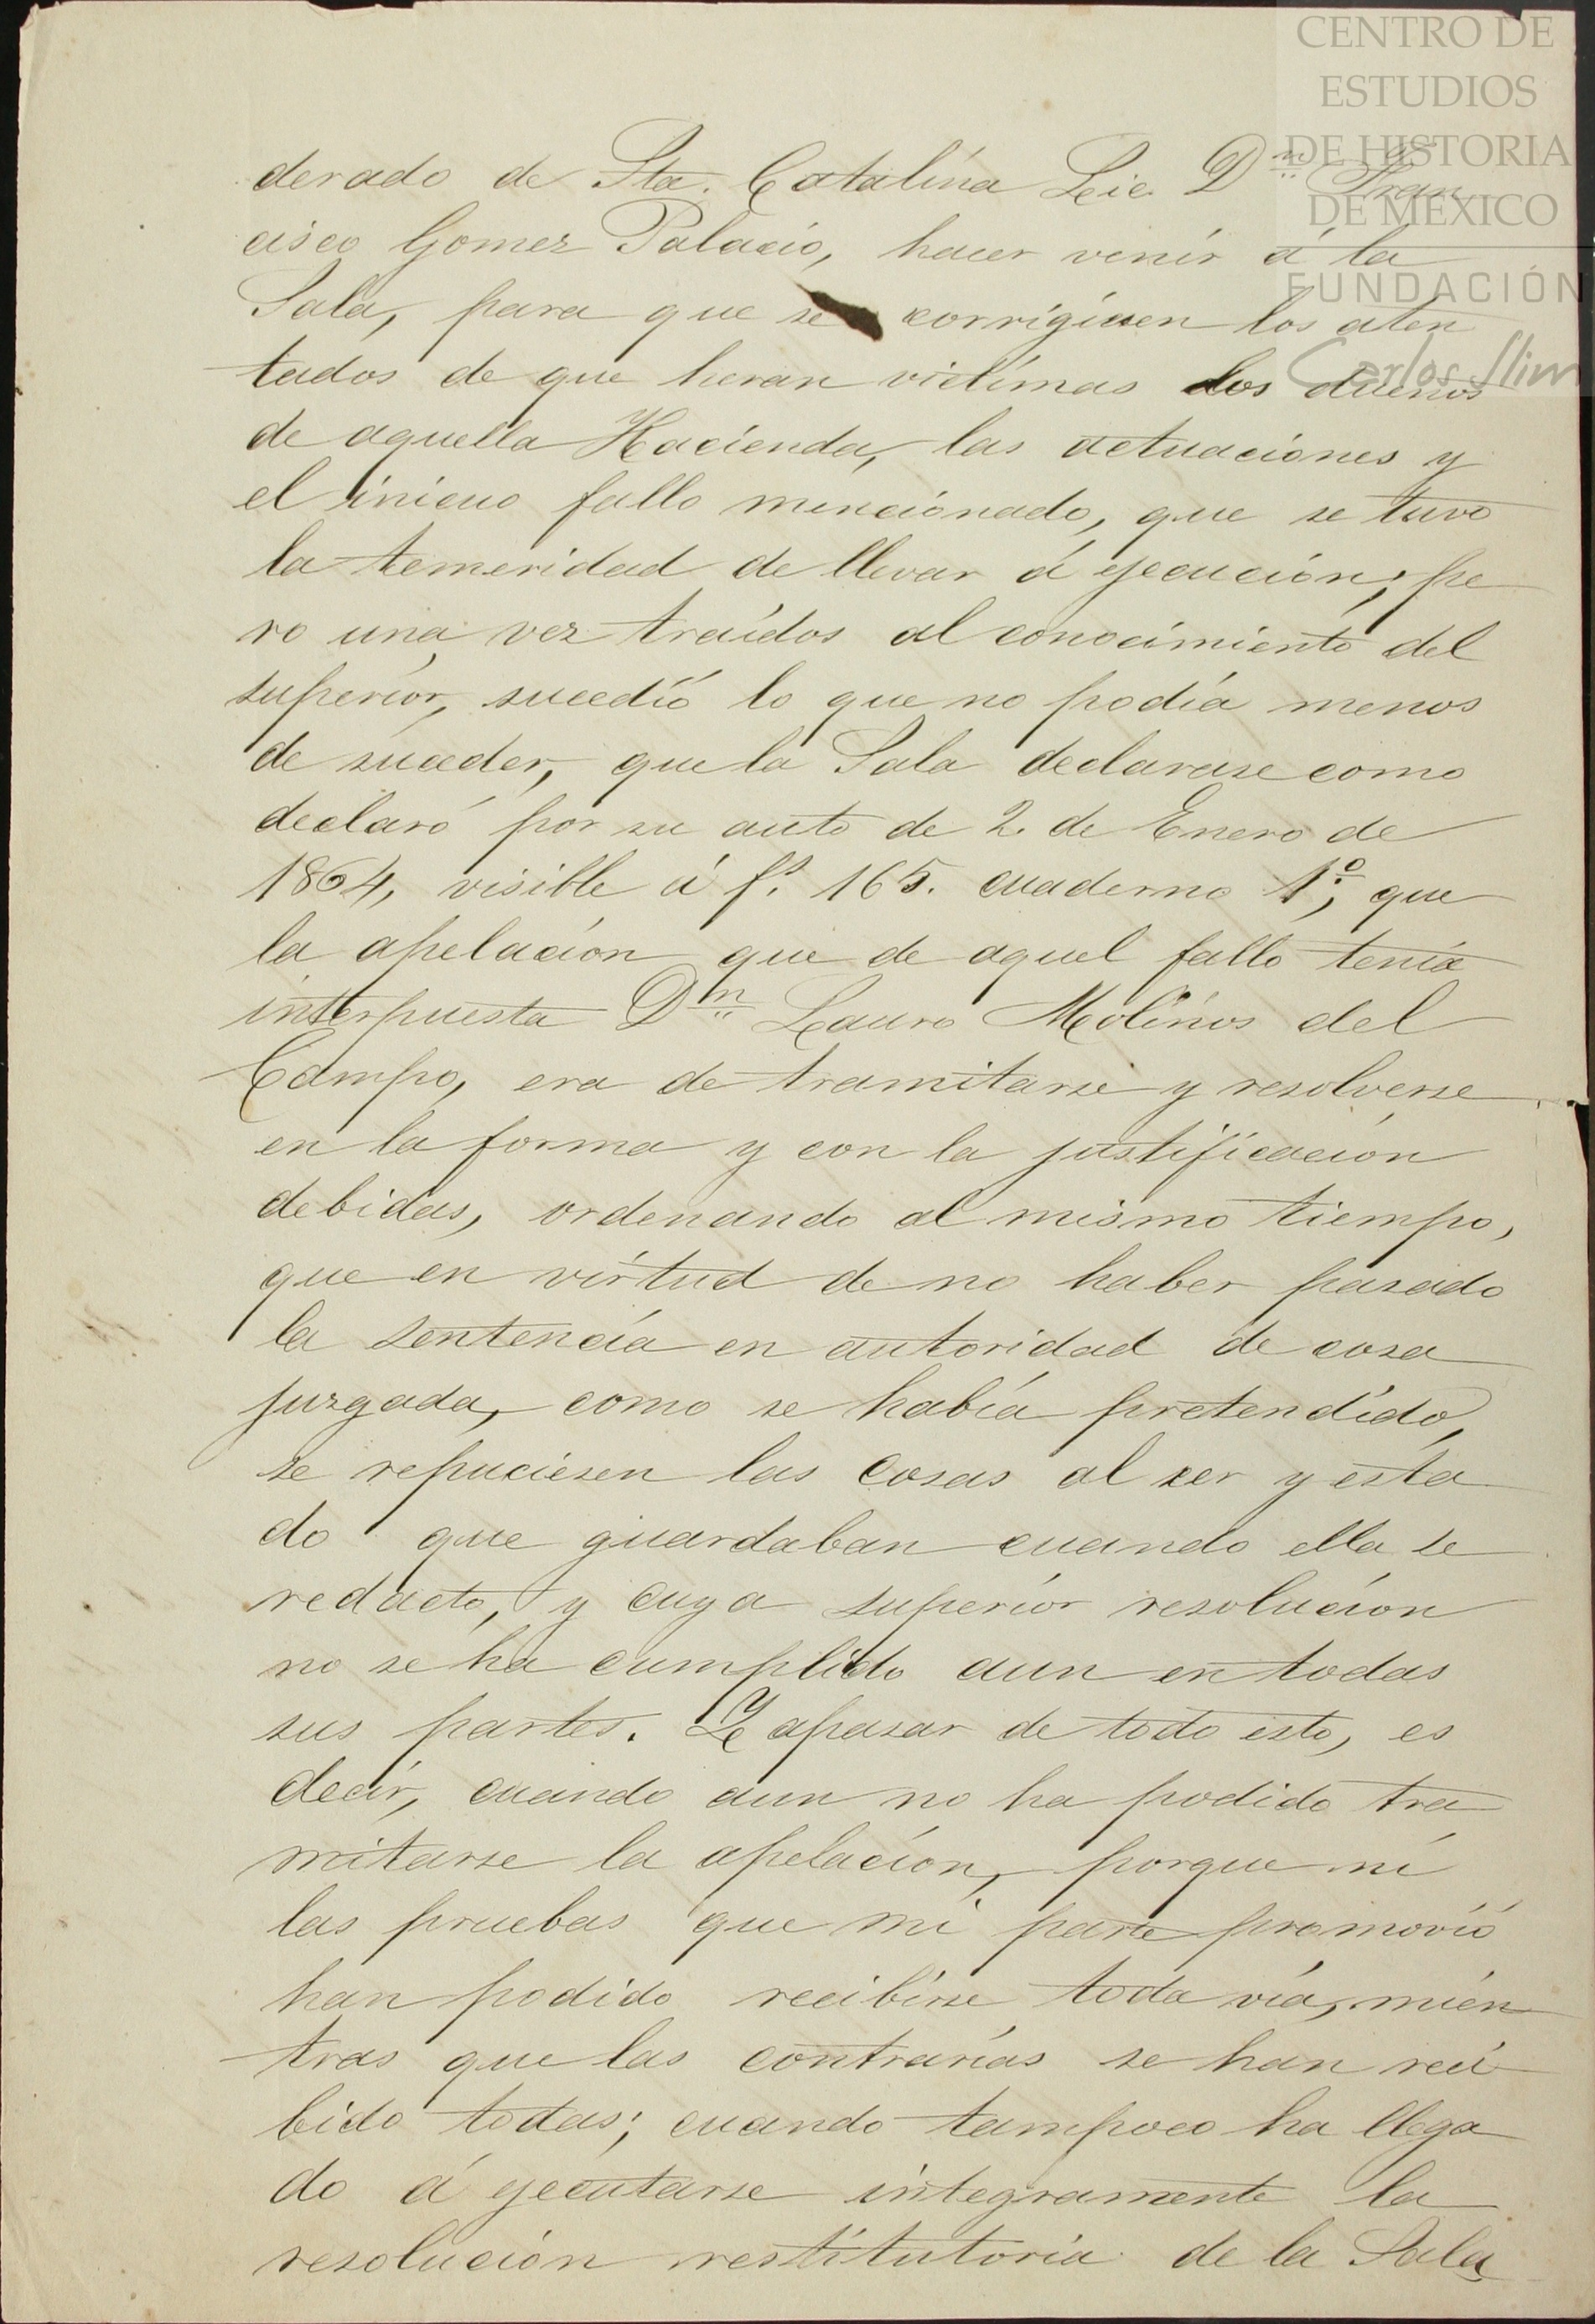 CENTRO DE
ESTUDIOS
DE HISTORIA
DE MÉXICO
FUNDACIÓN
Carlos Slim
derado de Sta. Catalina Lic. Dn Fran
cisco Gomez Palacio, hacer venir á la
Sala, para que se corrigiesen los aten
tados de que heran victimas los dueños
de aquella Hacienda, las actuaciones y
el inicuo fallo mencionado, que se tuvo
la temeridad de llevar á ejecucion, pe
ro una vez traidos al conocimiento del
superior, sucedió lo que no podia menos
de suceder, que la Sala declarase como
declaró por su auto de 2. de Enero de
1864, visible á fs. 165. cuaderno 1º, que
la apelacion que de aquel fallo tenia
interpuesta Dn Lauro Molinos del
Campo, era de tramitarse y resolverse
en la forma y con la justificacion
debidas, ordenando al mismo tiempo,
que en virtud de no haber pasado
la sentencia en autoridad de cosa
juzgada, como se habia pretendido,
se repuciesen las cosas al ser y esta
do que guardaban cuando ella se
redacto, y cuya superior resolucion
no se ha cumplido aun en todas
sus partes. Y apasar de todo esto, es
decir, cuando aun no ha podido tra
mitarse la apelacion, porque ni
las pruebas que mi parte promovió
han podido recibirse toda via, mien
tras que las contrarias se han reci
bido todas; cuando tampoco ha llega
do á ejecutarse integramente la
resolucion restitutoria de la Sala